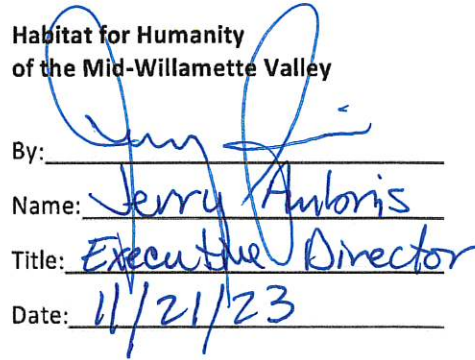 Habitat for Humanity
of the Mid-Willamette Valley
By:
Name: Jerry Ambris
Title: Executive Director
Date: 11/21/23